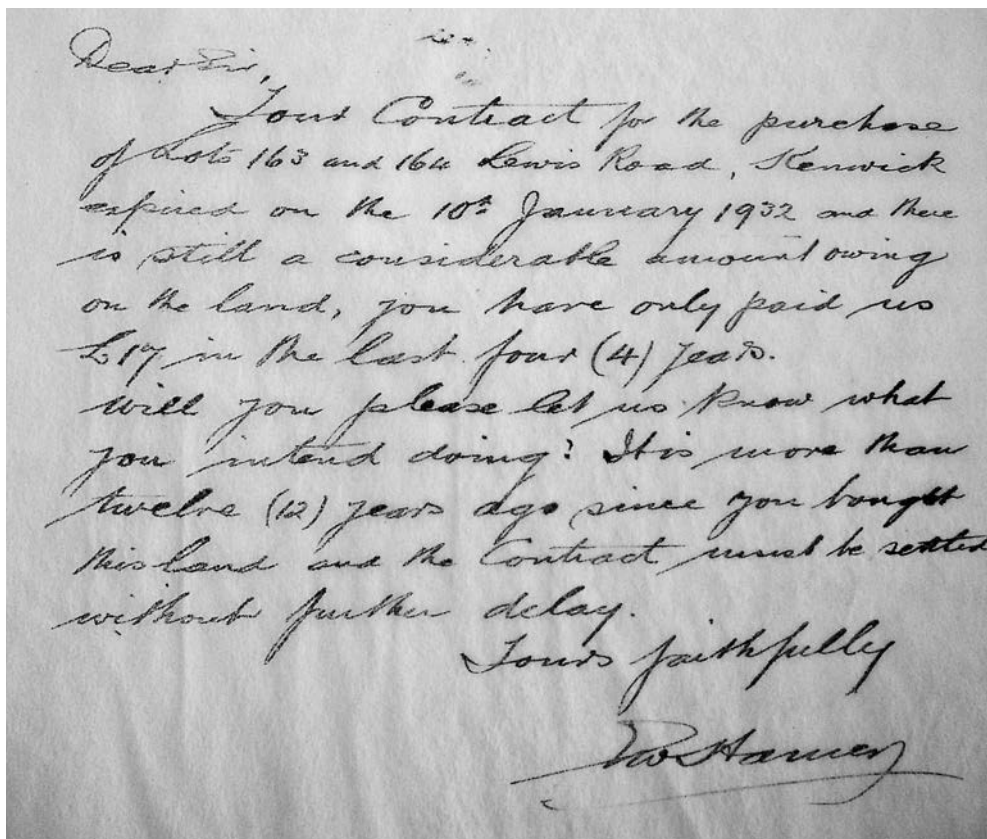 Dear Sir,
Your Contract for the purchase
of Lots 163 and 164 Lewis Road, Kenwick
expired on the 10th January 1932 and there
is still a considerable amount owing
on the land, you have only paid us
£17 in the last four (4) years.
will you please let us know what
you intend doing? It is more than
twelve (12) years ago since you bought
this land and the Contract must be settled
without further delay.
Yours faithfully